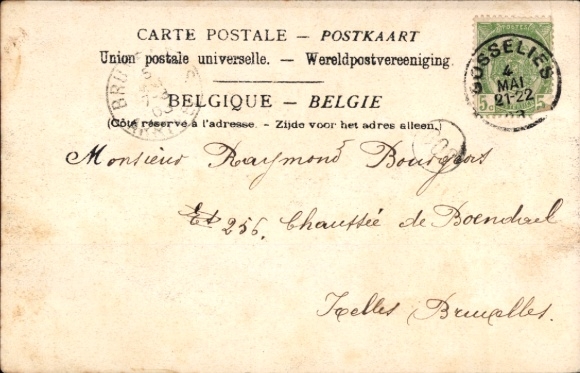 CARTE POSTALE – POSTKAART
Union postale universelle. – Wereldpostvereeniging.
BELGIQUE – BELGIE
(Côté réservé à l'adresse. – Zijde voor het adres alleen.)
GOSSELIES
4
MAI
21-22
5c 5c
Monsieur Raymond Bourgeois
256. Chaussée de Boendael
Ixelles Bruxelles.